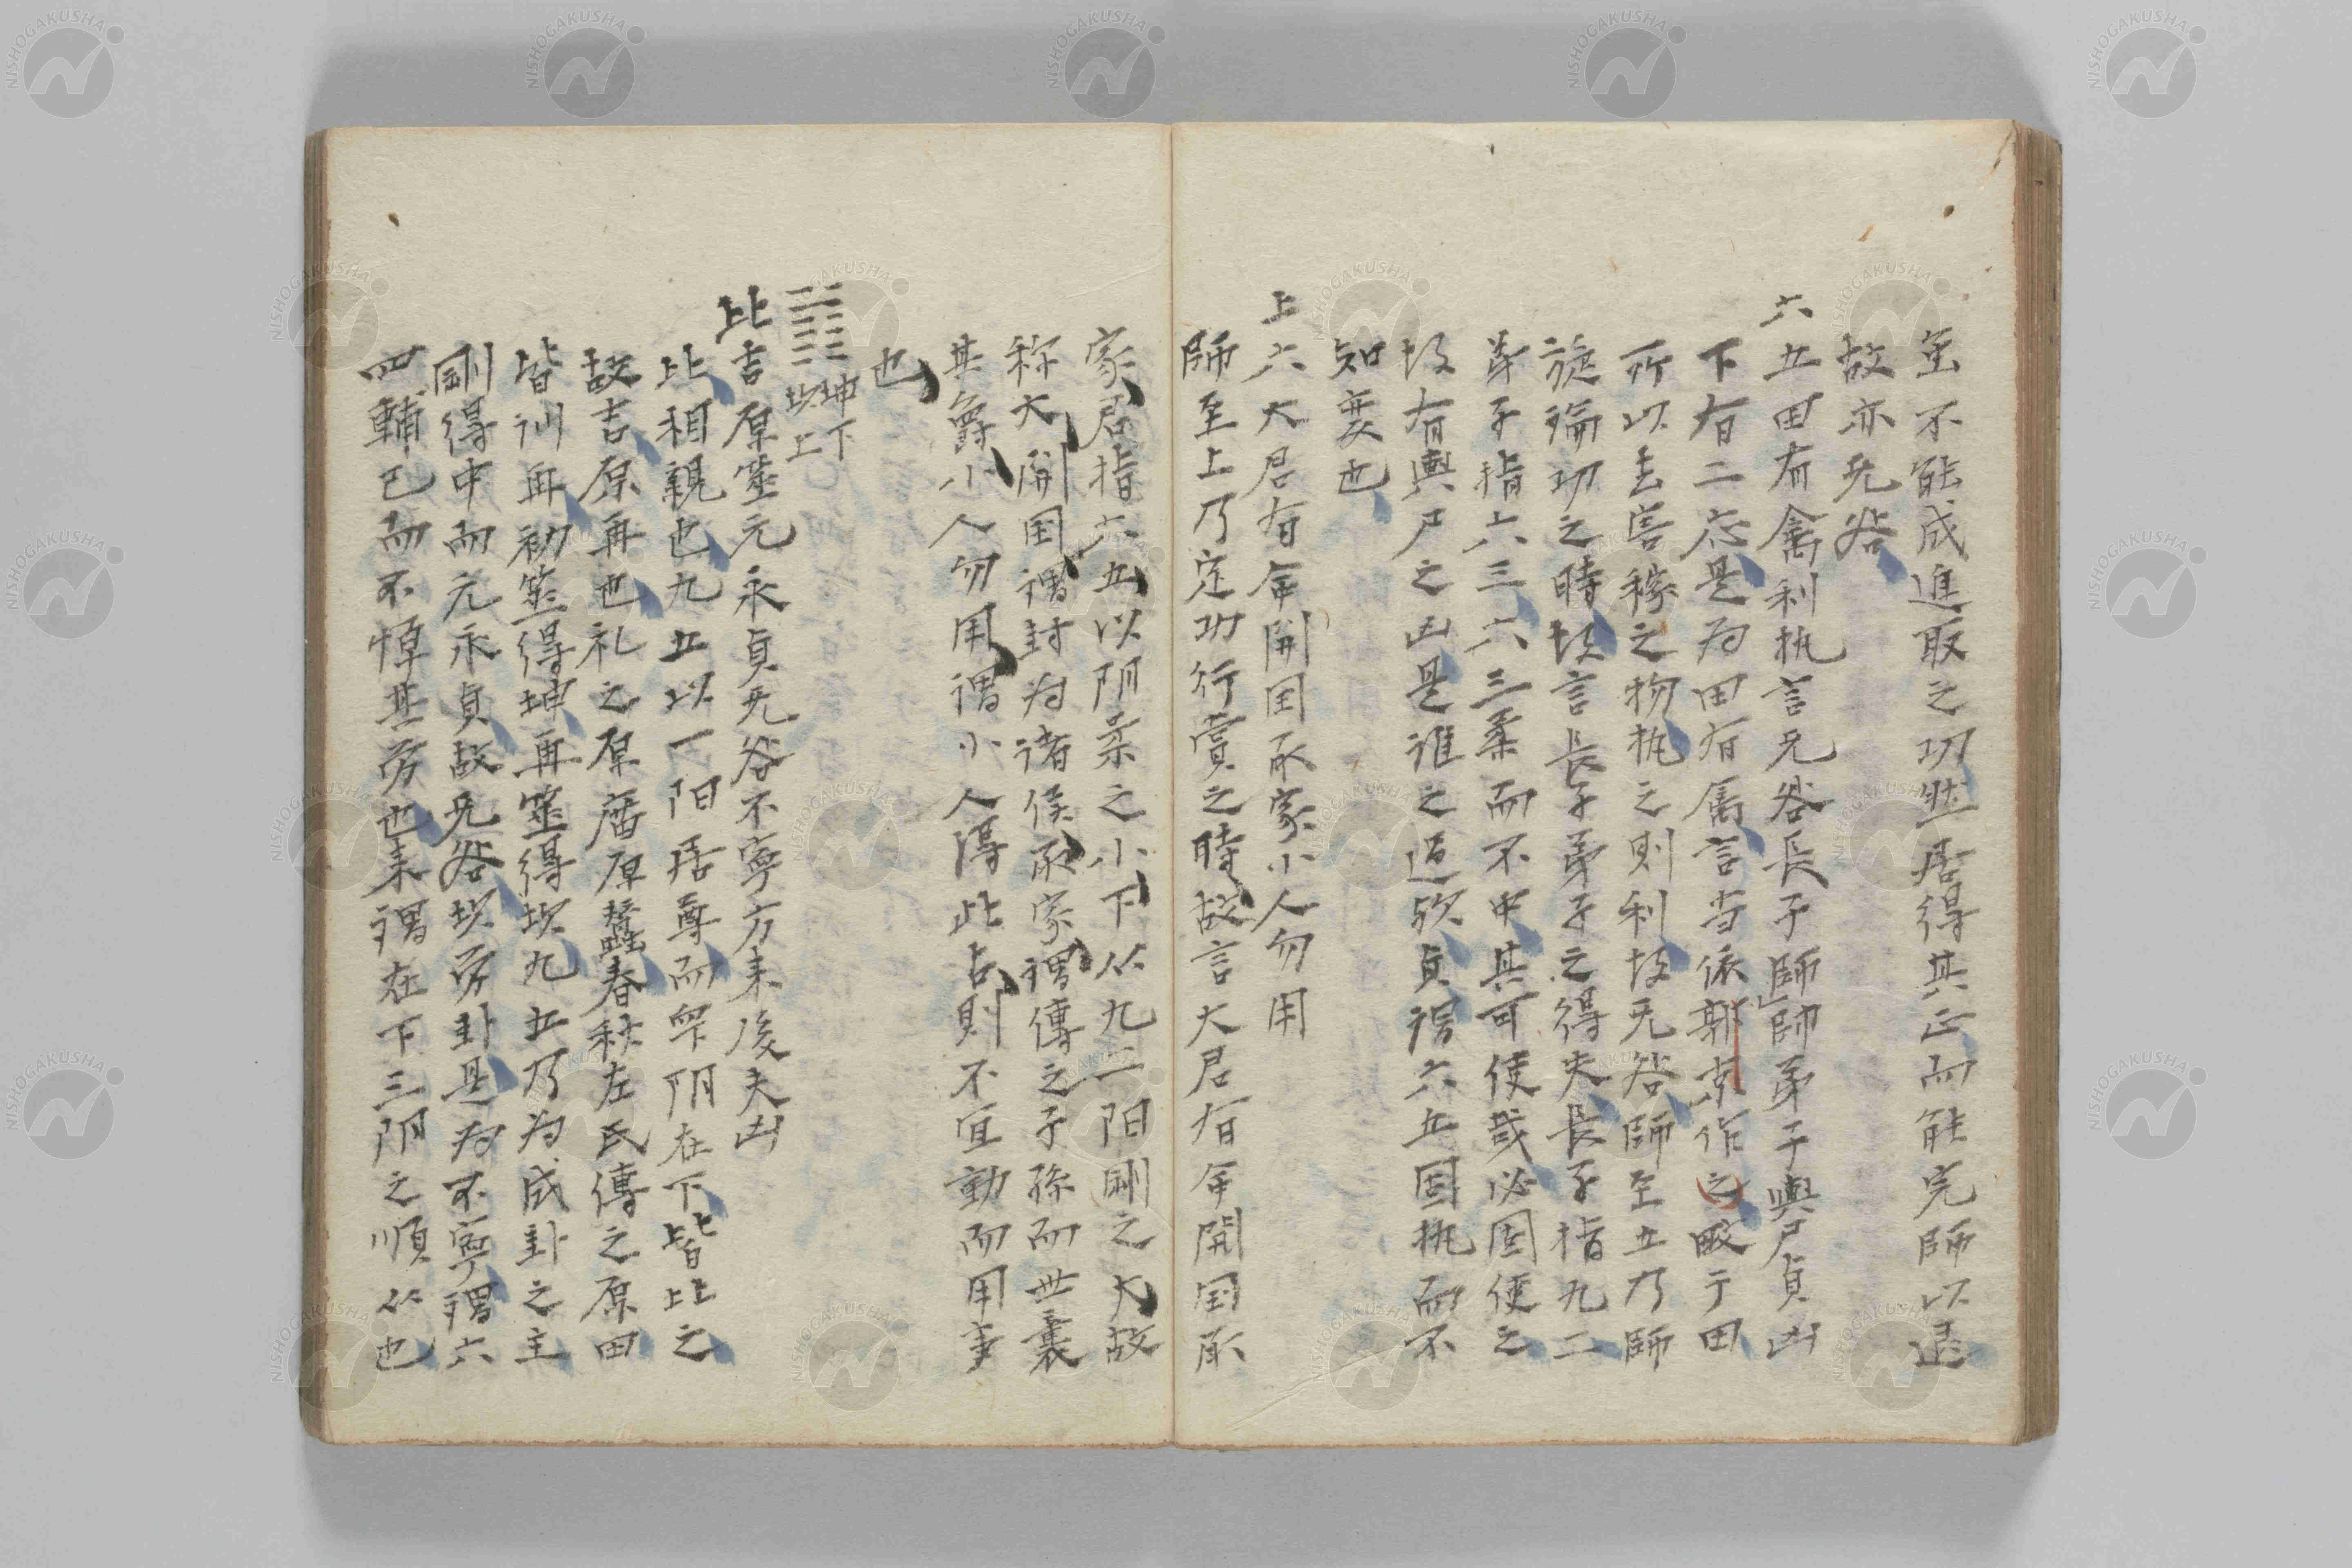 虽不能成進取之功然居得其正而能完師以退
故亦无咎
六五田有禽利执言无咎長子師師弟子輿尸貞凶
下有二应是为田有禽言当依郭京作之畋于田
所以去害稼之物执之則利故无咎師至五乃師
旋論功之時故言長子弟子之得失長子指九二
弟子指六三六三柔而不中其可使哉必固使之
故有輿尸之凶是誰之過欤貞谓六五固执而不
知変也
上六大君有命開国承家小人勿用
師至上乃定功行賞之時故言大君有命開国承
家大君指六五以阴柔之小下从九二阳剛之大故
称大開国謂封为诸侯承家謂傳之子孫而世襲
其爵小人勿用謂小人得此占則不宜動而用事
也
坤下
坎上
比吉原筮元永貞无咎不寧方来後夫凶
比相親也九五以一阳居尊而四阴在下皆比之
故吉原再也礼之原廟原蠶春秋左氏傳之原田
皆训再初筮得坤再筮得坎九五乃为成卦之主
剛得中而元永貞故无咎坎劳卦是为不寧謂六
四輔已而不憚其劳也来謂在下三阴之順从也
NISHOGAKUSHA